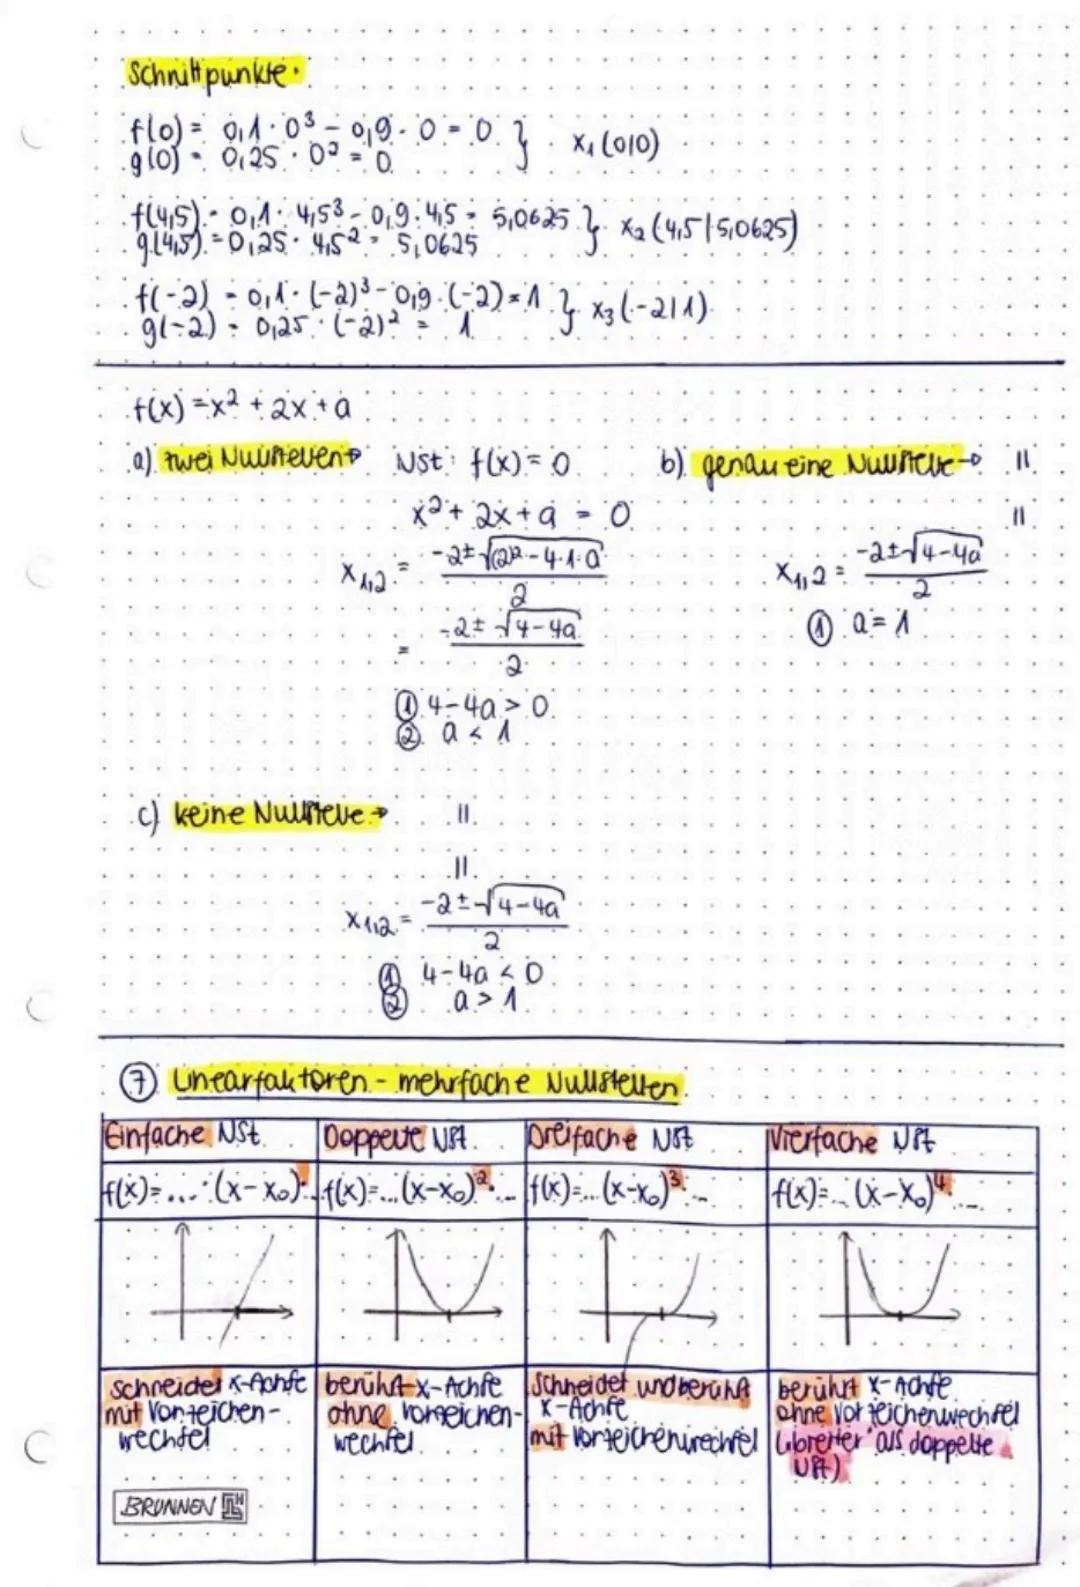 Schnittpunkte.
f(0) = 0,1 · 0³ - 0,9 · 0 = 0 } x₁ (0|0)
g(0) = 0,25 · 0² = 0
f(4,5) = 0,1 · 4,5³ - 0,9 · 4,5 = 5,0625 } x₂ (4,5|5,0625)
g(4,5) = 0,25 · 4,5² = 5,0625
f(-2) = 0,1 · (-2)³ - 0,9 · (-2) = 1 } x₃ (-2|1)
g(-2) = 0,25 · (-2)² = 1
f(x) = x² + 2x + a
a) zwei Nullstellen → Nst: f(x) = 0
x² + 2x + a = 0
x₁,₂ = (-2 ± √((2)² - 4·1·a)) / 2
= (-2 ± √(4-4a)) / 2
① 4-4a > 0
② a < 1
b) genau eine Nullstelle → ||
||
x₁,₂ = (-2 ± √(4-4a)) / 2
① a = 1
c) keine Nullstelle → ||
||
x₁,₂ = (-2 ± √(4-4a)) / 2
① 4-4a < 0
② a > 1
⑦ Linearfaktoren - mehrfache Nullstellen
Einfache Nst. Doppelte Nst. Dreifache Nst Vierfache Nst
f(x)=...·(x-x₀)¹... f(x)=...(x-x₀)²... f(x)=...(x-x₀)³... f(x)=...(x-x₀)⁴...
schneidet x-Achse
mit Vorzeichen-
wechsel
berührt x-Achse
ohne Vorzeichen-
wechsel
Schneidet und berührt
x-Achse
mit Vorzeichenwechsel
berührt x-Achse
ohne Vorzeichenwechsel
("breiter" als doppelte
Nst)
BRUNNEN